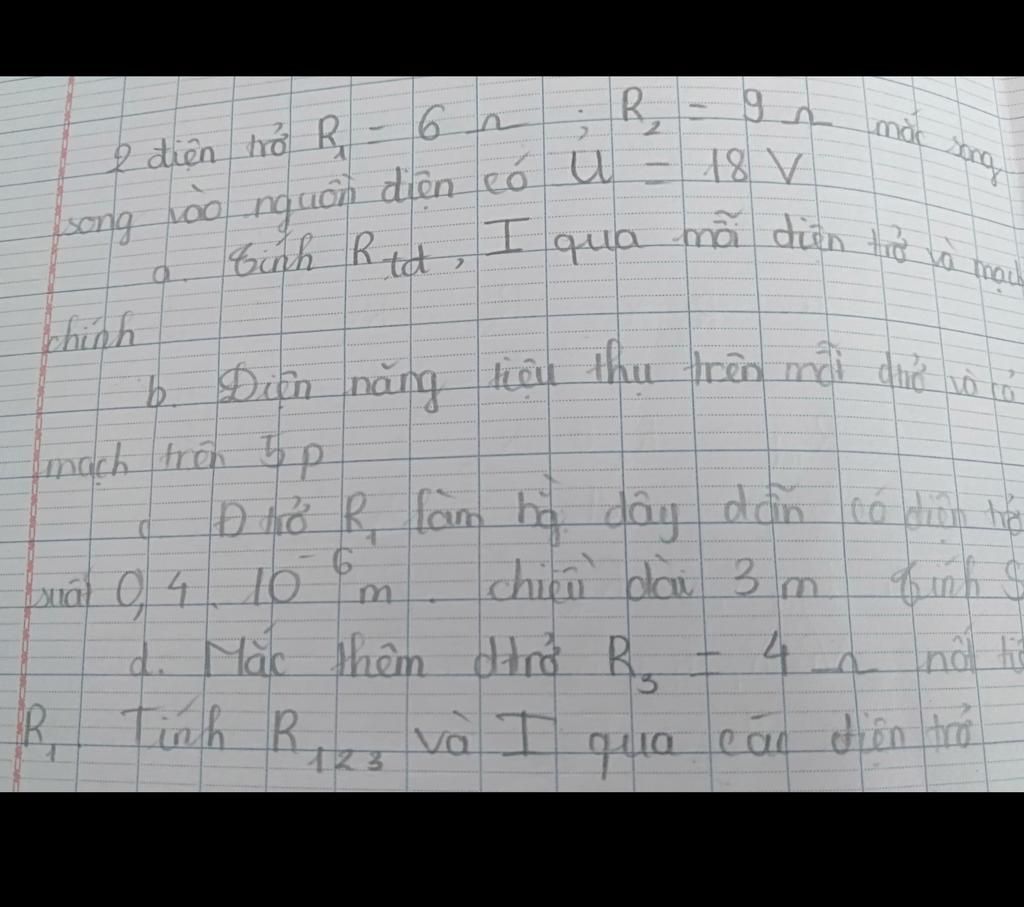 2 điện trở R1 = 6 Ω ; R2 = 9 Ω mắc song
song vào nguồn điện có U = 18 V
a. Tính Rtđ, I qua mỗi điện trở và mạch
chính
b. Điện năng tiêu thụ trên mỗi đtrở và cả
mạch trên 5p
c. Đ trở R1 làm bằng dây dẫn có điện trở
suất 0,4.10^-6 m. chiều dài 3 m tính S
d. Mắc thêm đtrở R3 = 4 Ω nối
R1 Tính R123 và I qua các điện trở